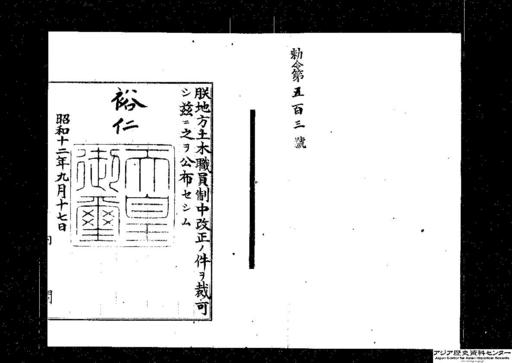 勅令第五百三號
朕地方土木職員制中改正ノ件ヲ裁可
シ茲ニ之ヲ公布セシム
裕仁
天皇御璽
昭和十二年九月十七日
アジア歴史資料センター
Japan Center for Asian Historical Records